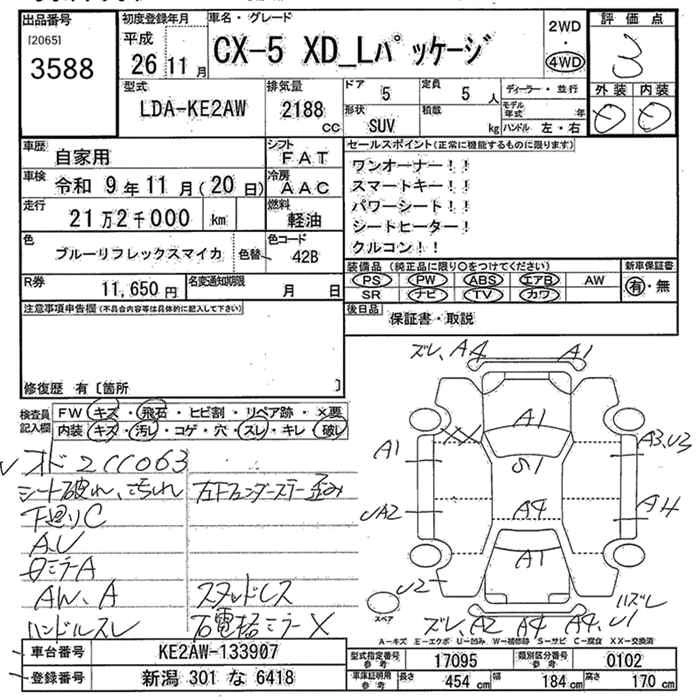 出品番号
[2065]
3588
初度登録年月
平成
26 11 月
車名・グレード
CX-5 XD_Lパッケージ
2WD
・
4WD
評価点
3
型式
LDA-KE2AW
排気量
2188 CC
ドア 5
定員 5 人
形状 SUV
積載 kg
ディーラー・並行
モデル年式 年
ハンドル 左・右
外装 内装
車歴 自家用
シフト FAT
車検 令和 9年 11月(20日)
冷房 AAC
走行 21万2千000 km
燃料 軽油
色 ブルーリフレックスマイカ
色替
色コード 42B
R券 11,650 円
名変通知期限 月 日
セールスポイント(正常に機能するものに限ります)
ワンオーナー!!
スマートキー!!
パワーシート!!
シートヒーター!
クルコン!!
装備品(純正品に限り○をつけてください)
新車保証書
PS PW ABS エアB AW
有・無
SR ナビ TV カワ
後日品 保証書・取説
注意事項申告欄(不具合内容等は具体的に記入して下さい)
修復歴 有〔箇所 〕
検査員記入欄
FW キズ・飛石・ヒビ割・リペア跡・×要
内装 キズ・汚レ・コゲ・穴・スレ・キレ・破レ
シート破れ、よごれ
下廻りC
A.U
AW、A
ハンドルスレ
スタッドレス
ズレ、A4 A1
A1
A1
A3、U3
A4
A4
A1
U2
スペア
ズレ、A2 A4 A4、U1
ハズレ
A-キズ E-エクボ U-凹み W-補修跡 S-サビ C-腐食 XX-交換済
車台番号 KE2AW-133907
登録番号 新潟 301 な 6418
型式指定番号 参考 17095
類別区分番号 参考 0102
車庫証明用 参考 長さ 454 cm 幅 184 cm 高さ 170 cm